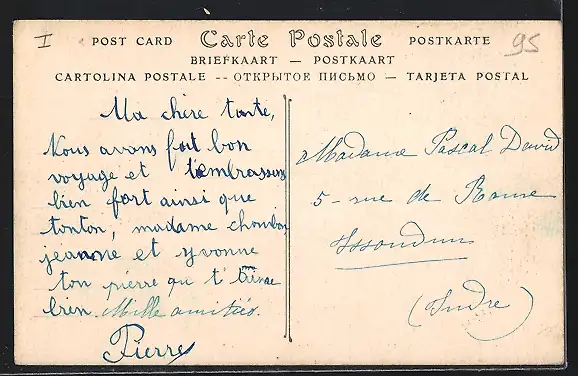 I
95
POST CARD Carte Postale POSTKARTE
BRIEFKAART — POSTKAART
CARTOLINA POSTALE -- ОТКРЫТОЕ ПИСЬМО — TARJETA POSTAL
Ma chère tante,
Nous avons fait bon
voyage et t'embrassons
bien fort ainsi que
tonton, madame
jeanne et yvonne
ton pierre qui t'aime
bien. Mille amitiés.
Pierre
Madame Pascal David
5 - rue de Rome
Issoudun
(Indre)